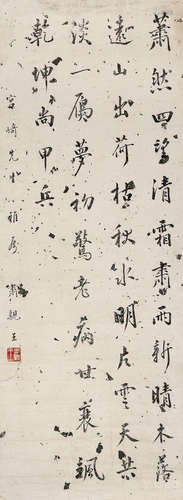 蕭然四望清霜肅雨新晴木落
遠山出荷枯秋水明片雲天共
淡一鴈夢初驚老病世衰颯
乾坤尚甲兵
宮崎先生雅屬
肅親王